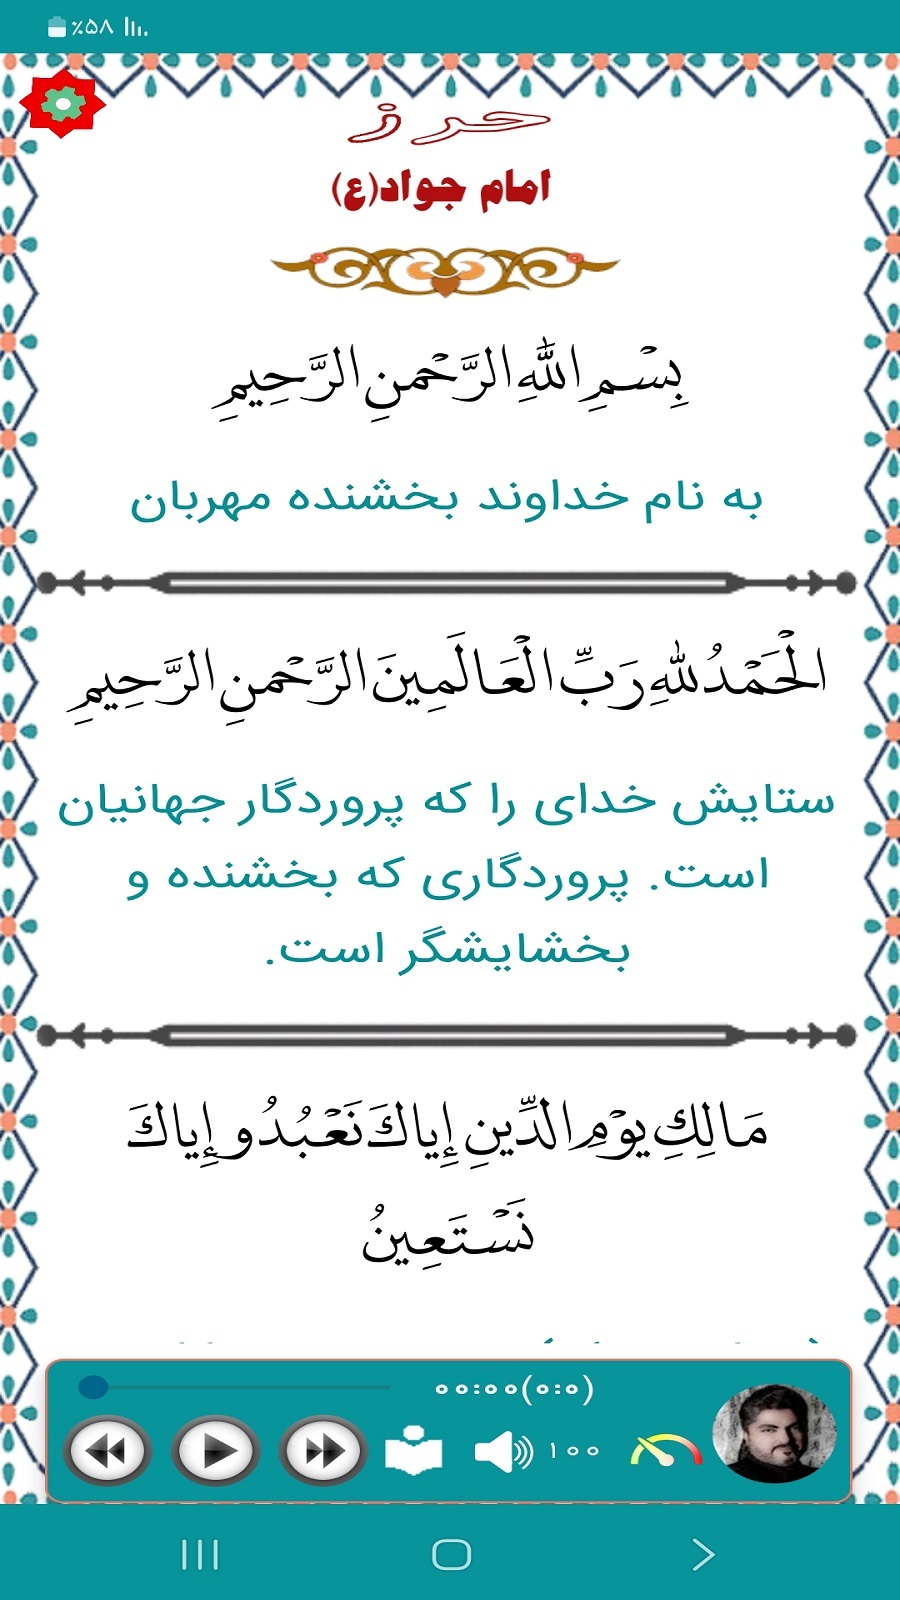 ٪۵۸
حرز
امام جواد(ع)
بِسْمِ اللهِ الرَّحْمنِ الرَّحِيمِ
به نام خداوند بخشنده مهربان
الْحَمْدُ للهِ رَبِّ الْعَالَمِينَ الرَّحْمنِ الرَّحِيمِ
ستایش خدای را که پروردگار جهانیان
است. پروردگاری که بخشنده و
بخشایشگر است.
مَالِكِ يوْمِ الدِّينِ إِياكَ نَعْبُدُ و إِياكَ
نَسْتَعِينُ
۰۰:۰۰(۰:۰)
۱۰۰